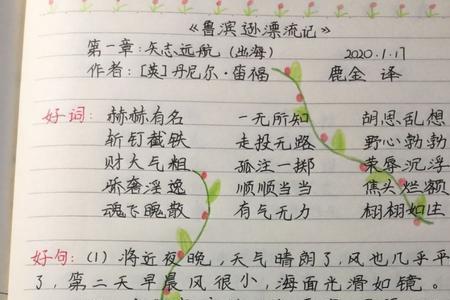 《鲁滨逊漂流记》
第一章：矢志远航（出海） 2020.1.17
作者：[英]丹尼尔·笛福 鹿金 译
好词：赫赫有名 一无所知 胡思乱想
斩钉截铁 走投无路 野心勃勃
财大气粗 孤注一掷 荣辱沉浮
骄奢淫逸 顺顺当当 焦头烂额
魂飞魄散 有气无力 栩栩如生
好句：（1）将近夜晚，天气晴朗了，风也几乎平
了，第二天早晨风很小，海面光滑如镜。